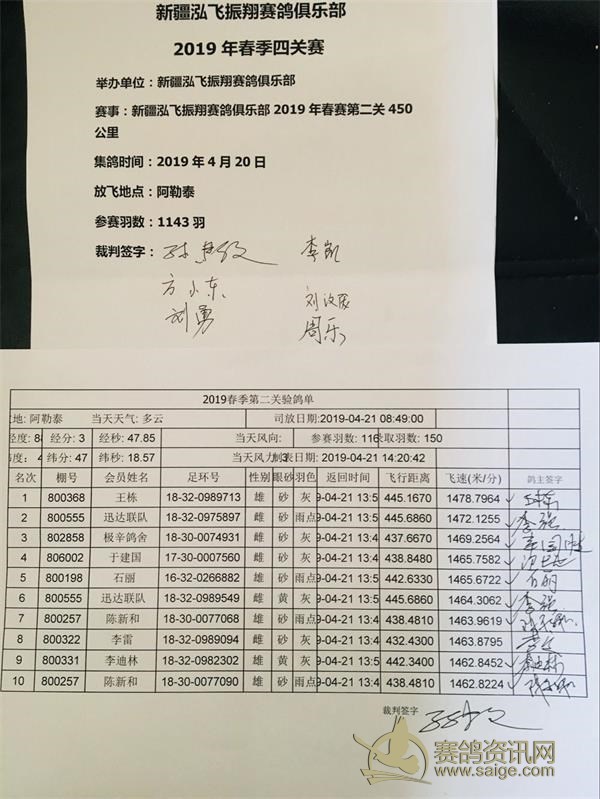 新疆泓飞振翔赛鸽俱乐部
2019 年春季四关赛
举办单位：新疆泓飞振翔赛鸽俱乐部
赛事：新疆泓飞振翔赛鸽俱乐部 2019 年春赛第二关 450
公里
集鸽时间：2019 年 4 月 20 日
放飞地点：阿勒泰
参赛羽数：1143 羽
裁判签字： 李凯
方小东
刘勇 周乐
2019春季第二关验鸽单
地: 阿勒泰 当天天气: 多云 司放日期:2019-04-21 08:49:00
经度: 8 经分: 3 经秒: 47.85 当天风向: 参赛羽数: 116 录取羽数: 150
纬度: 4 纬分: 47 纬秒: 18.57 当天风力: 3 制表日期:2019-04-21 14:20:42
名次 棚号 会员姓名 足环号 性别 眼砂 羽色 返回时间 飞行距离 飞速(米/分) 鸽主签字
1 800368 王栋 18-32-0989713 雄 砂 灰 9-04-21 13:5 445.1670 1478.7964
2 800555 迅达联队 18-32-0975897 雄 砂 雨点 9-04-21 13:5 445.6860 1472.1255 李强
3 802858 极辛鸽舍 18-30-0074931 雄 砂 灰 9-04-21 13:4 437.6670 1469.2564
4 806002 于建国 17-30-0007560 雌 砂 灰 9-04-21 13:4 438.8480 1465.7582
5 800198 石丽 16-32-0266882 雌 砂 雨点 9-04-21 13:5 442.6330 1465.6722 石丽
6 800555 迅达联队 18-32-0989549 雌 黄 灰 9-04-21 13:5 445.6860 1464.3062 李强
7 800257 陈新和 18-30-0077068 雄 砂 雨点 9-04-21 13:4 438.4810 1463.9619
8 800322 李雷 18-32-0989094 雌 砂 灰 9-04-21 13:4 432.4300 1463.8795
9 800331 李迪林 18-32-0982302 雌 黄 灰 9-04-21 13:5 442.3400 1462.8452
10 800257 陈新和 18-30-0077090 雌 砂 雨点 9-04-21 13:4 438.4810 1462.8224
裁判签字
赛鸽资讯网
www.saige.com